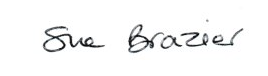 Sue Brazier